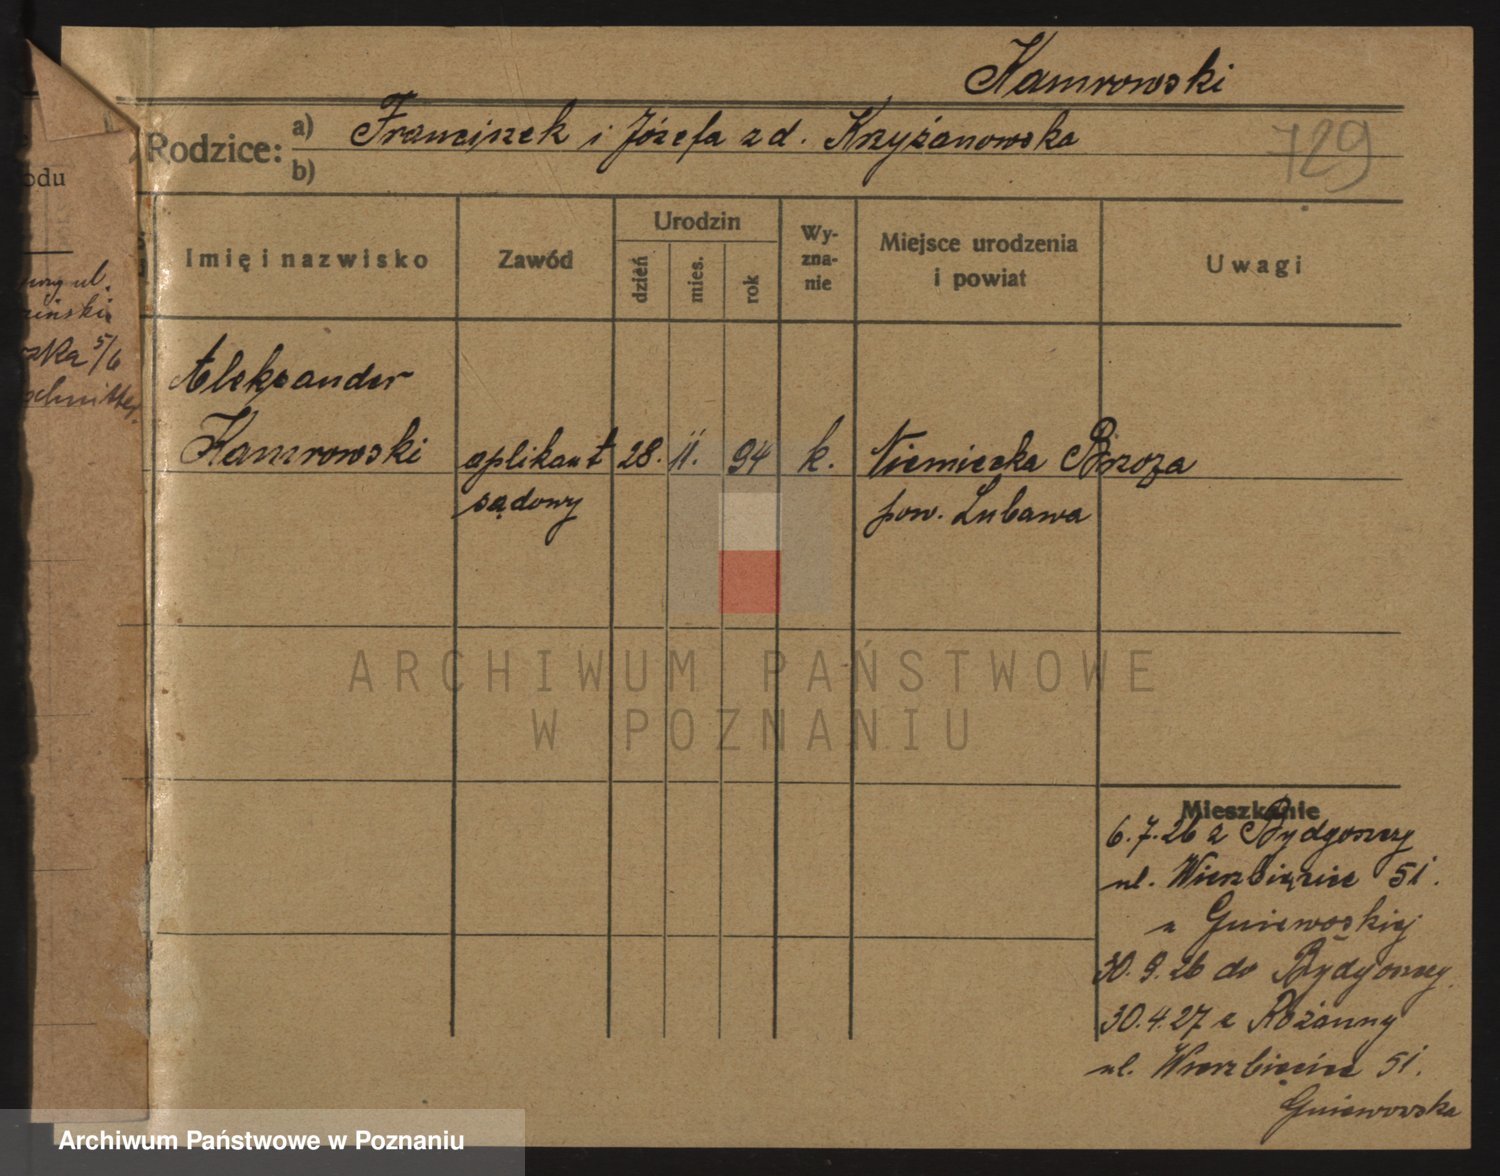 Kamrowski
Rodzice: a) Franciszek i Józefa z d. Krzyżanowska
b)
729
odu
Imię i nazwisko
Zawód
Urodzin
dzień
mies.
rok
Wy-
zna-
nie
Miejsce urodzenia
i powiat
Uwagi
ul.
5/6
Aleksander
Kamrowski
aplikant
sądowy
28. 11. 94
k.
Niemiecka Brzoza
pow. Lubawa
ARCHIWUM PAŃSTWOWE
W POZNANIU
Mieszkanie
6.7.26 z Bydgoszczy
ul. Wierzbięcice 51.
u Gniewoskiej
30.9.26 do Bydgoszczy
30.4.27 z Różanny
ul. Wierzbięcice 51.
Gniewowska
Archiwum Państwowe w Poznaniu